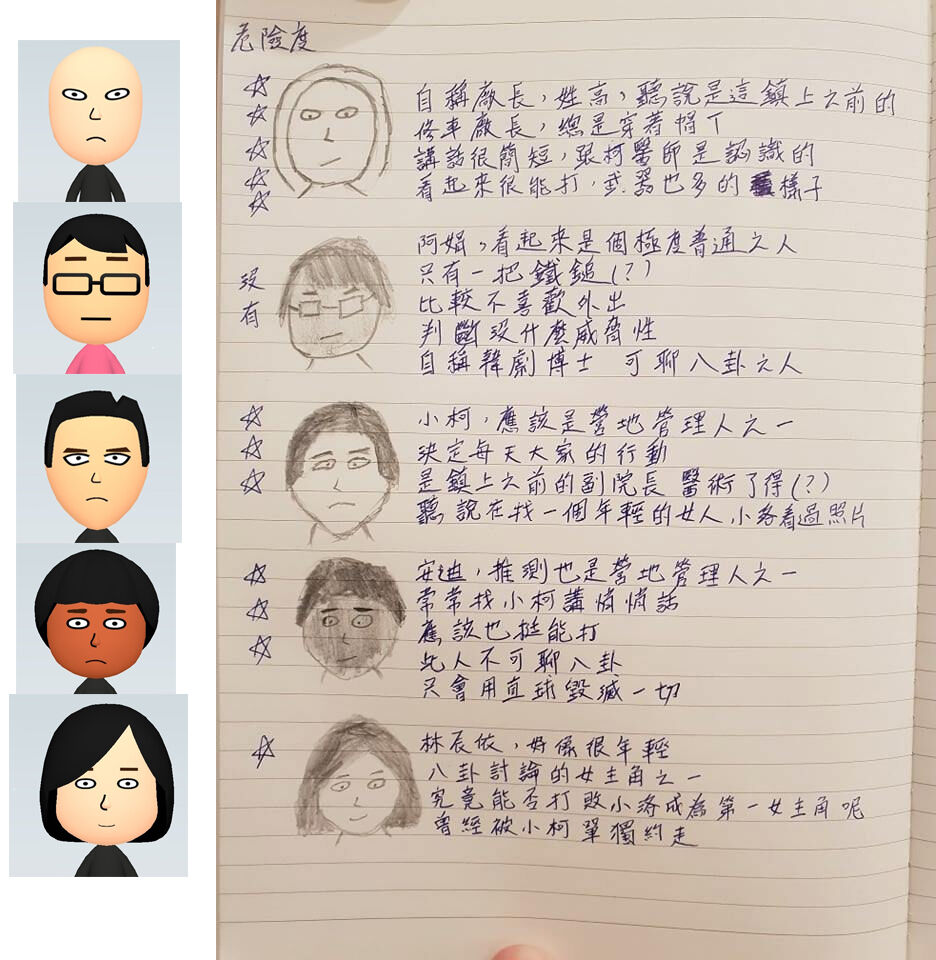 危險度
自稱廠長，姓高，聽說是這鎮上之前的
修車廠長，總是穿著帽T
講話很簡短，跟柯醫師是認識的
看起來很能打，武器也多的樣子
沒有
阿娟，看起來是個極度普通之人
只有一把鐵鎚(?)
比較不喜歡外出
判斷沒什麼威脅性
自稱韓劇博士 可聊八卦之人
小柯，應該是營地管理人之一
決定每天大家的行動
是鎮上之前的副院長 醫術了得(?)
聽說在找一個年輕的女人，小洛看過照片
安迪，推測也是營地管理人之一
常常找小柯講悄悄話
應該也挺能打
此人不可聊八卦
只會用直球毀滅一切
林辰依，好像很年輕
八卦討論的女主角之一
究竟能否打敗小洛成為第一女主角呢
曾經被小柯單獨約走